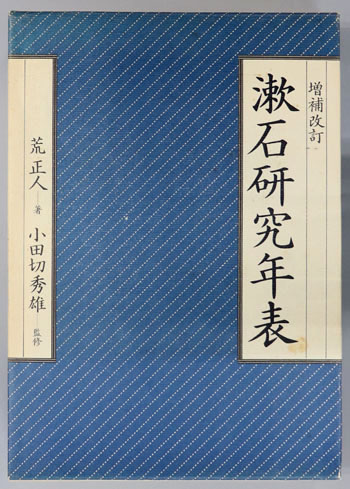 増補改訂
漱石研究年表
荒正人 著
小田切秀雄 監修